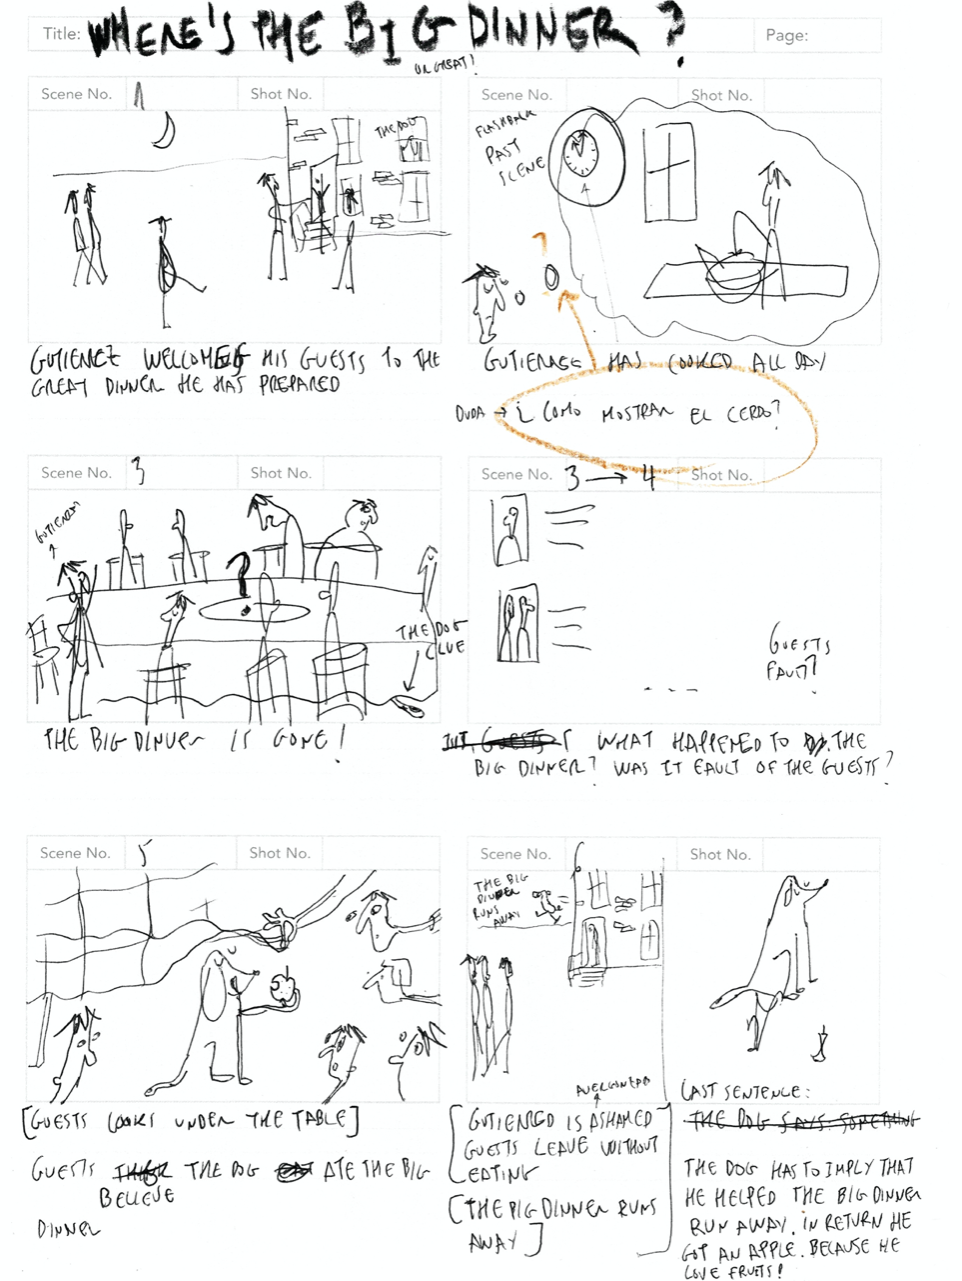 Title: WHERE'S THE BIG DINNER?
OR GREAT!
Page:
Scene No. 1 Shot No.
THE DOG
GUTIERREZ WELLCOMES HIS GUESTS TO THE
GREAT DINNER HE HAS PREPARED
Scene No. Shot No.
FLASHBACK
PAST
SCENE
?
GUTIERREZ HAS COOKED ALL DAY
DUDA → ¿COMO MOSTRAR EL CERDO?
Scene No. 3 Shot No.
GUTIERREZ
?
THE DOG
CLUE
THE BIG DINNER IS GONE!
Scene No. 3 → 4 Shot No.
GUESTS
FAULT?
WHAT HAPPENED TO THE
BIG DINNER? WAS IT FAULT OF THE GUESTS?
Scene No. 5 Shot No.
[GUESTS LOOKS UNDER THE TABLE]
GUESTS THE DOG ATE THE BIG
BELIEVE
DINNER
Scene No. 6 Shot No.
THE BIG
DINNER
RUNS
AWAY
AVERGONZADO
[GUTIERREZ IS ASHAMED
GUESTS LEAVE WITHOUT
EATING
[THE BIG DINNER RUNS
AWAY]
LAST SENTENCE:
THE DOG SAYS SOMETHING
THE DOG HAS TO IMPLY THAT
HE HELPED THE BIG DINNER
RUN AWAY. IN RETURN HE
GOT AN APPLE. BECAUSE HE
LOVE FRUITS!